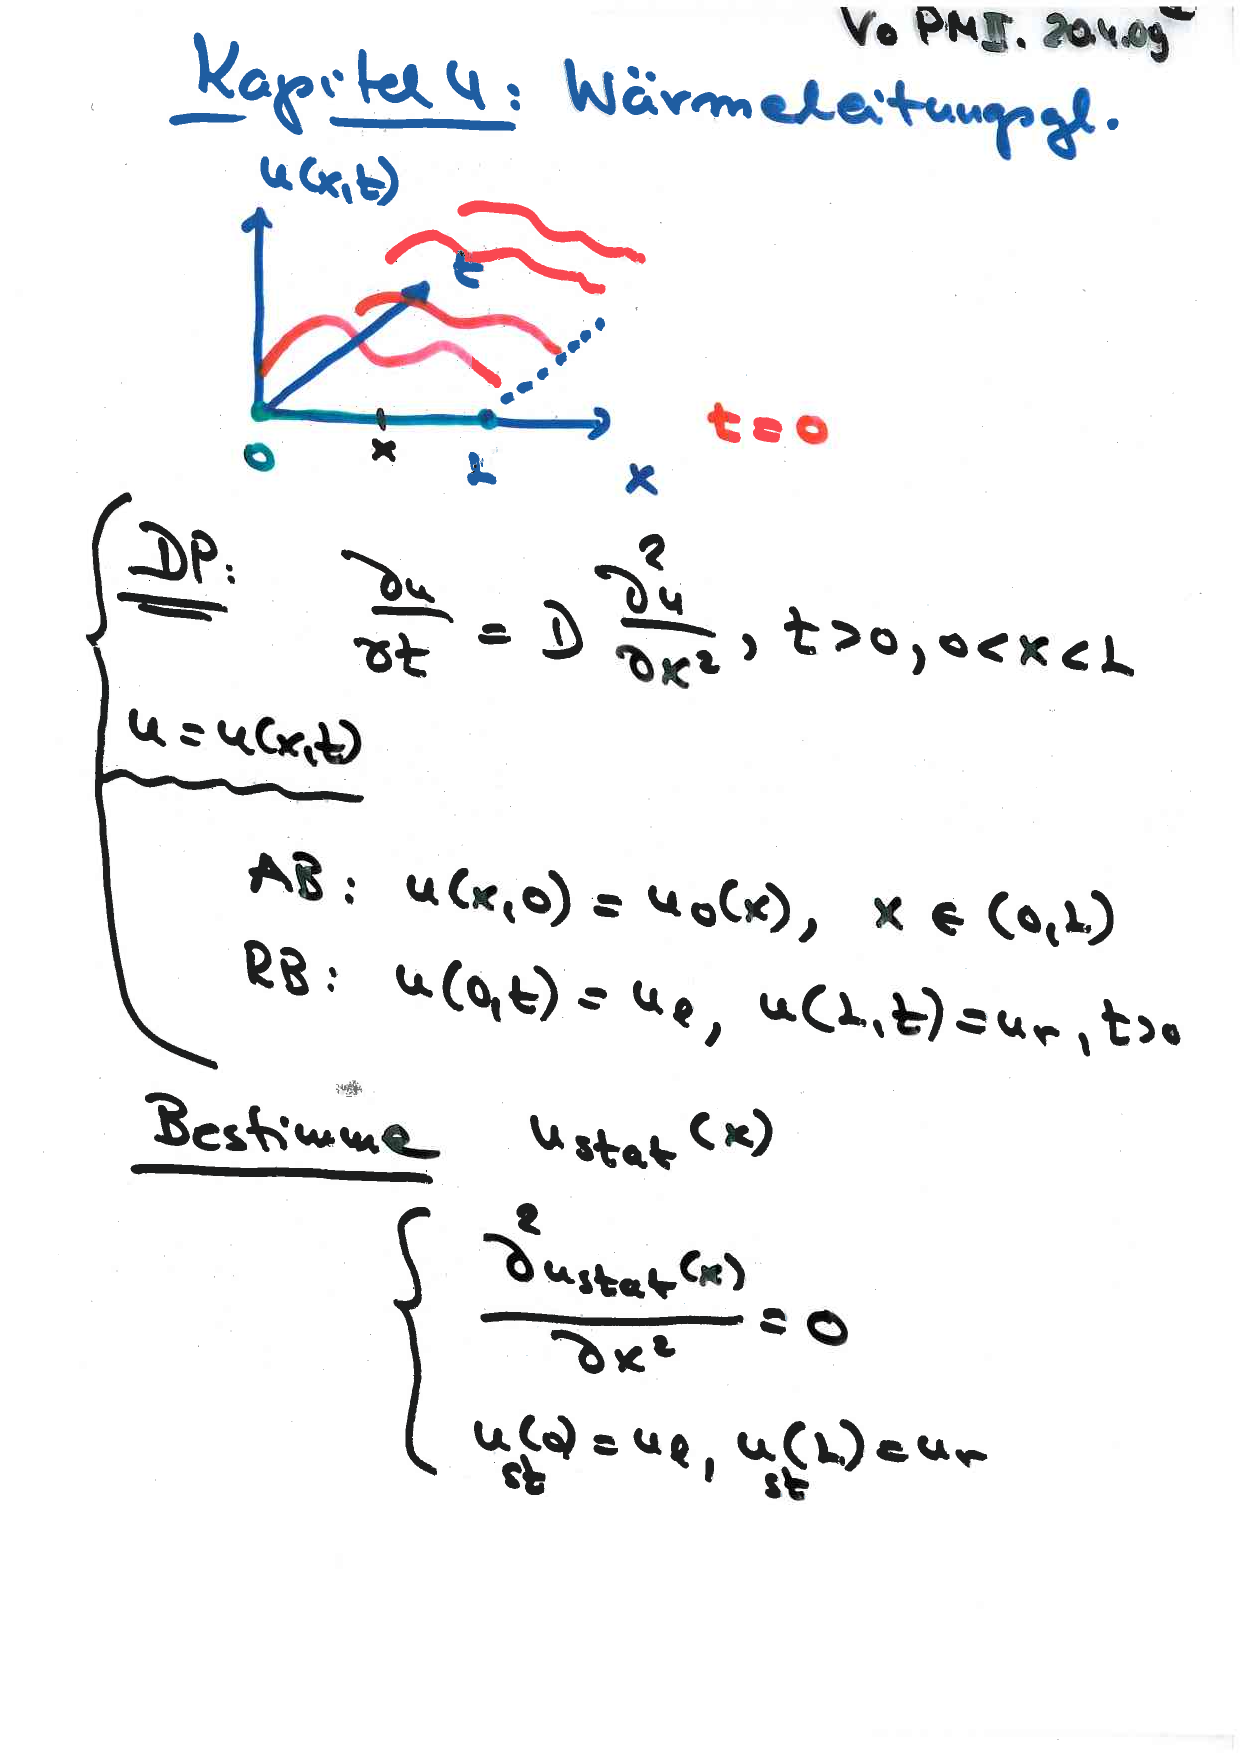 Vo PM II. 20.4.09
Kapitel 4: Wärmeleitungsgl.
u(x,t)
t
0 x L x
t = 0
DP: ∂u/∂t = D ∂²u/∂x², t>0, 0<x<L
u = u(x,t)
AB: u(x,0) = u₀(x), x ∈ (0,L)
RB: u(0,t) = u_l, u(L,t) = u_r, t>0
Bestimme u_stat(x)
∂²u_stat(x)/∂x² = 0
u_st(0) = u_l, u_st(L) = u_r